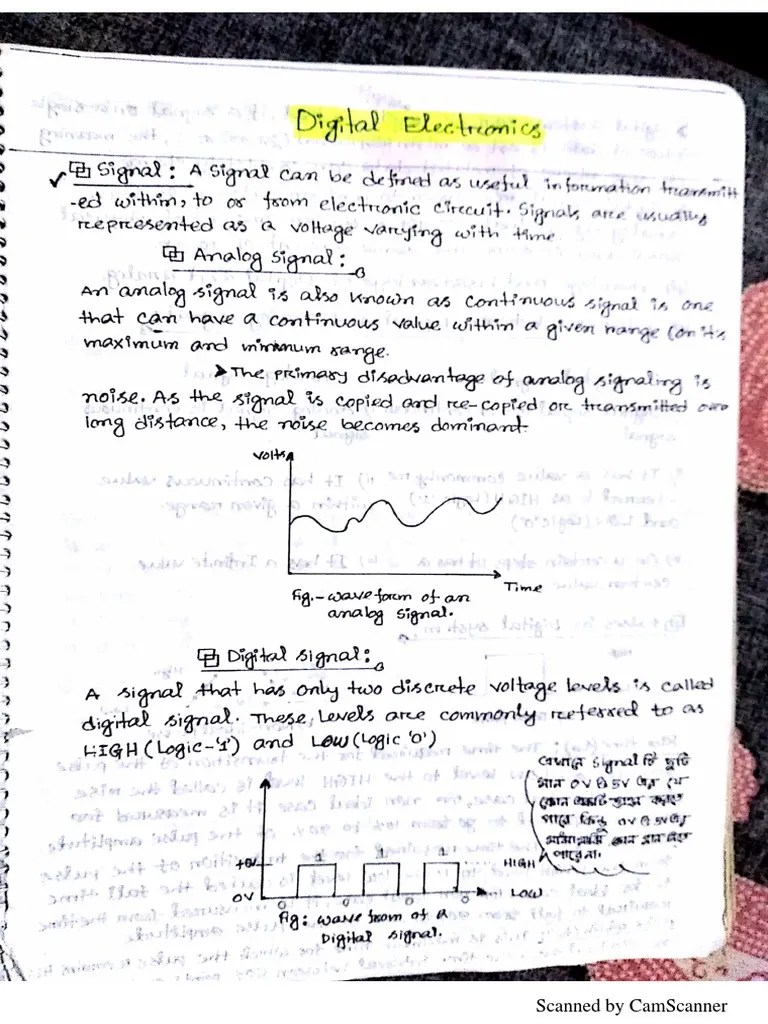 Digital Electronics
Signal: A signal can be defined as useful information transmitt
-ed within, to or from electronic circuit. Signals are usually
represented as a voltage varying with time.
Analog Signal:
An analog signal is also known as continuous signal is one
that can have a continuous value within a given range (on it's
maximum and minimum range.
➤ The primary disadvantage of analog signaling is
noise. As the signal is copied and re-copied or transmitted over
long distance, the noise becomes dominant.
Volts
Time
Fig.-waveform of an
analog signal.
Digital signal:
A signal that has only two discrete voltage levels is called
digital signal. These levels are commonly referred to as
HIGH (Logic-'1') and LOW (Logic '0')
এখানে signal টি দুটি
মান 0V ও 5V এর যে
কোন একটি
পারে কিন্তু 0V ও 5V এর
মাঝামাঝি কোন মান
পারেনা।
1 1 1
HIGH
0V
LOW
0 0 0 0
Fig: wave from of a
Digital signal.
Scanned by CamScanner